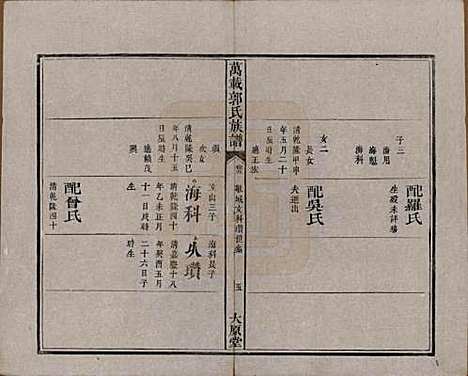 子三
海用
海魁
海科
女二
長女
清乾隆甲申
年五月二十
日辰時生
適王
配羅氏
生歿未詳葬
配吳氏
夫逝出
萬載郭氏族譜
五
太原堂
次女
清乾隆癸巳
年八月十五
日辰時生
適賴茂
興
三子
海科
清乾隆四十
年乙未正月
十一日辰時
生
配曾氏
清乾隆四十
海科長子
清嘉慶十八
年癸酉五月
二十六日子
時生